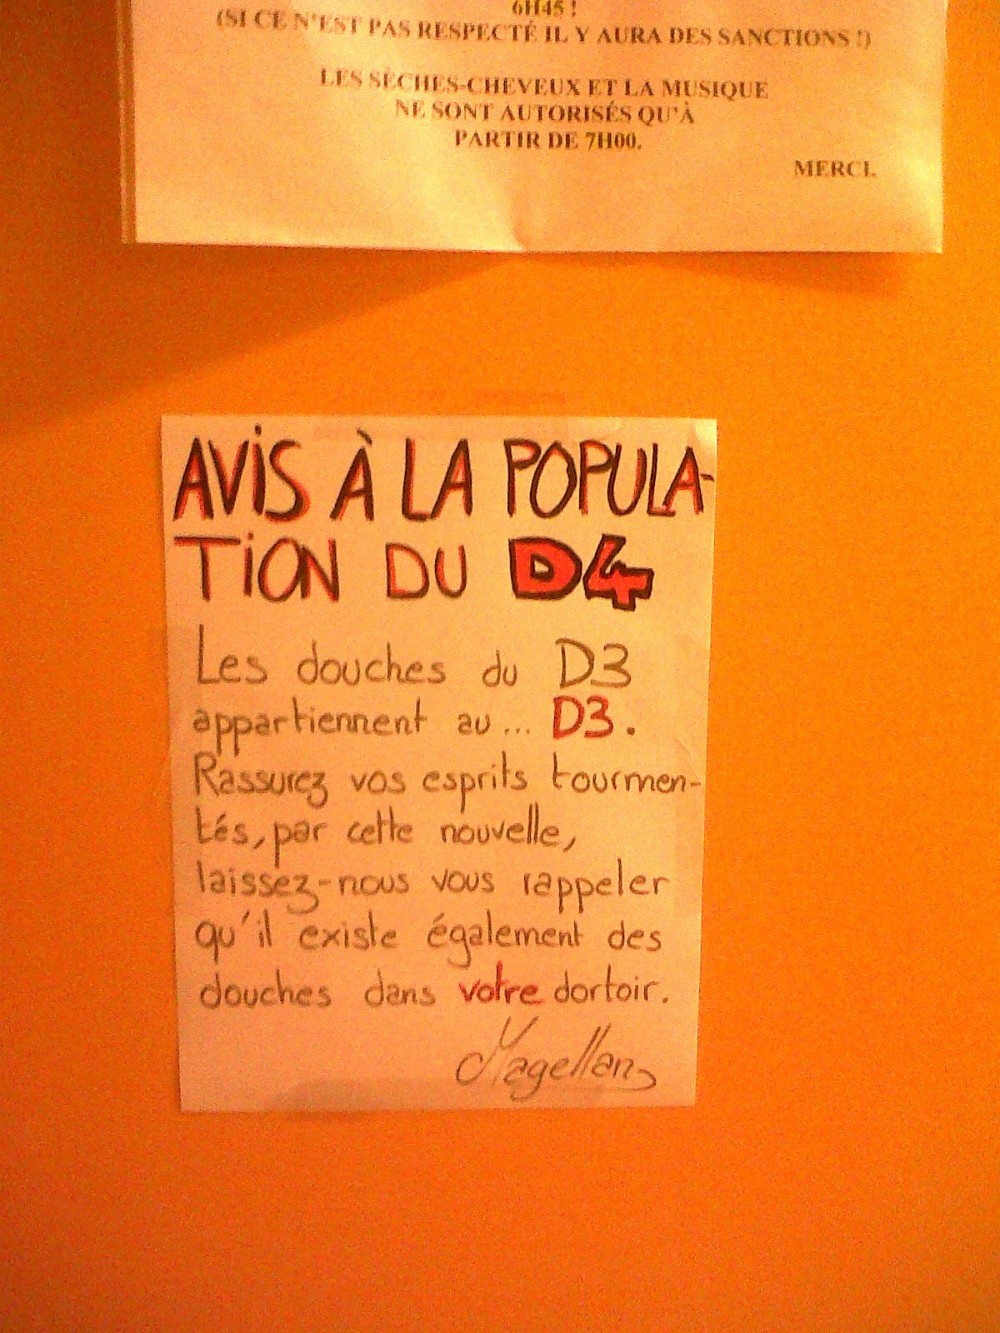 6H45 !
(SI CE N'EST PAS RESPECTÉ IL Y AURA DES SANCTIONS !)
LES SÈCHES-CHEVEUX ET LA MUSIQUE
NE SONT AUTORISÉS QU'À
PARTIR DE 7H00.
MERCI.
AVIS À LA POPULA-
TION DU D4
Les douches du D3
appartiennent au... D3.
Rassurez vos esprits tourmen-
tés, par cette nouvelle,
laissez-nous vous rappeler
qu'il existe également des
douches dans votre dortoir.
Magellan